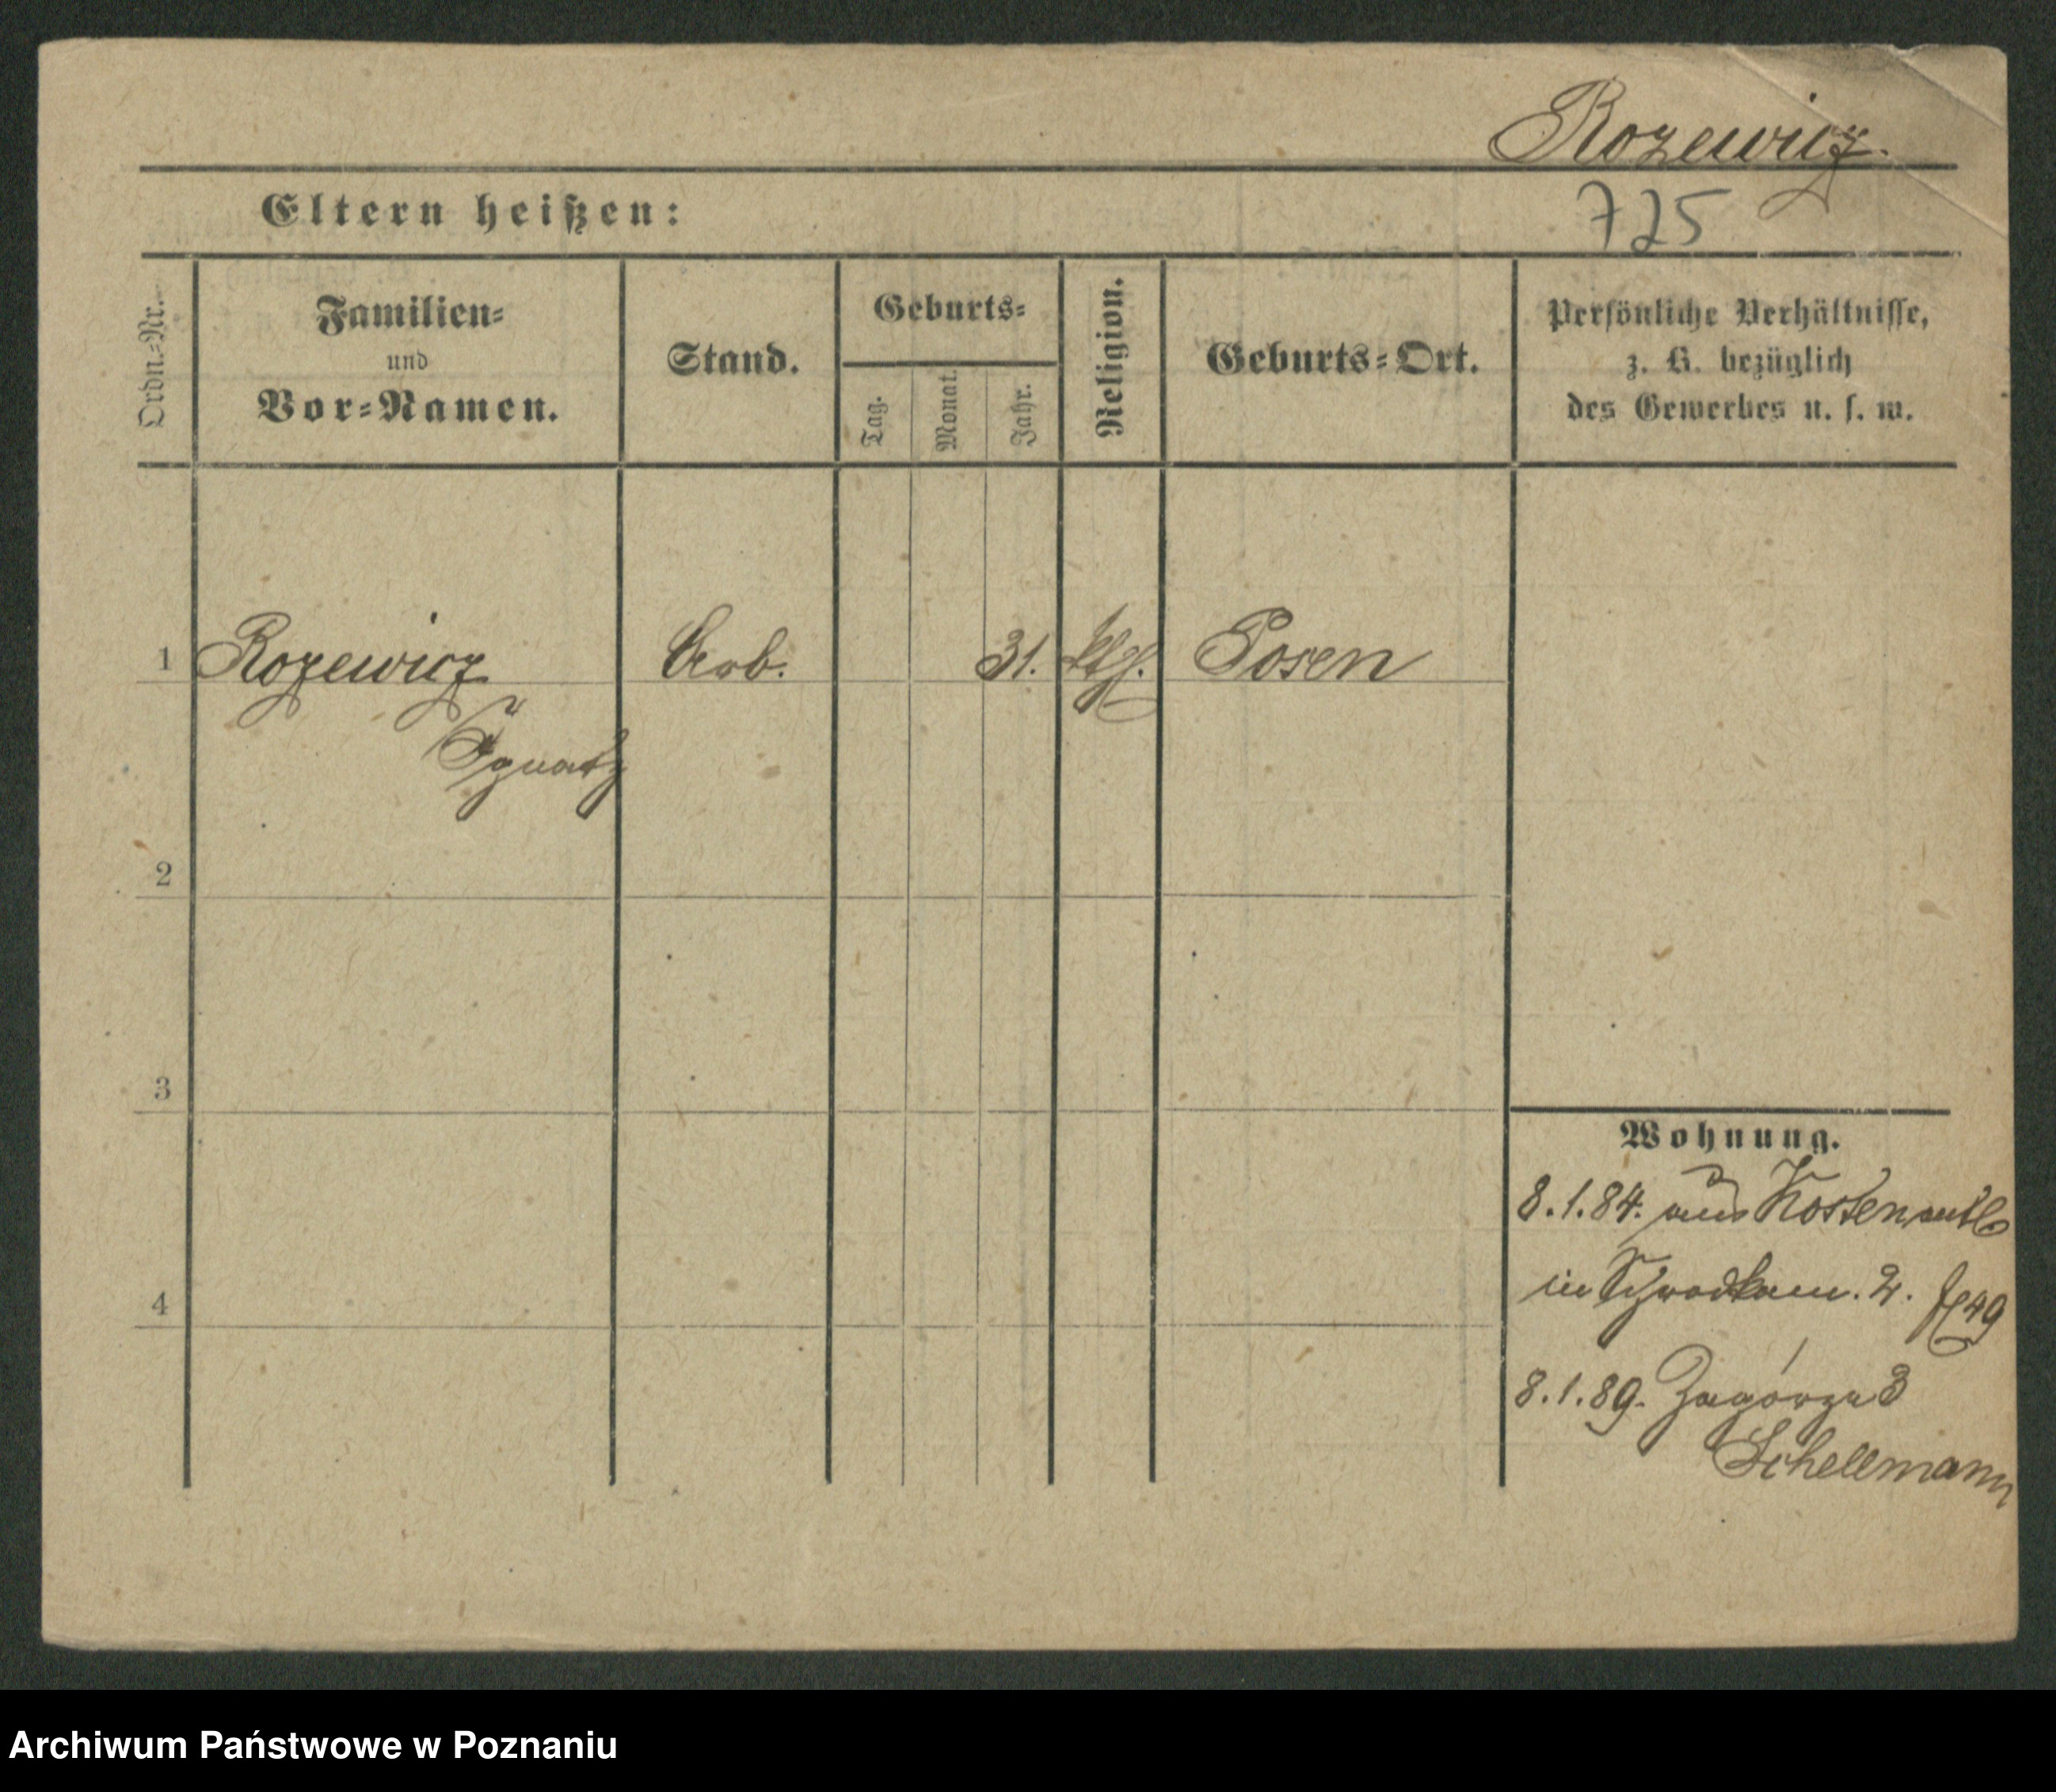 Rozewicz.
725
Eltern heißen:
Ordn.-Nr.
Familien-
und
Vor-Namen.
Stand.
Geburts-
Tag.
Monat.
Jahr.
Religion.
Geburts-Ort.
Persönliche Verhältnisse,
z. B. bezüglich
des Gewerbes u. s. w.
1 Rozewicz Arb. 31. kth. Posen
Ignatz
2
3
4
Wohnung.
8.1.84. aus Kosten
in 2. 49
8.1.89. Zagórze 3
Schellmann
Archiwum Państwowe w Poznaniu